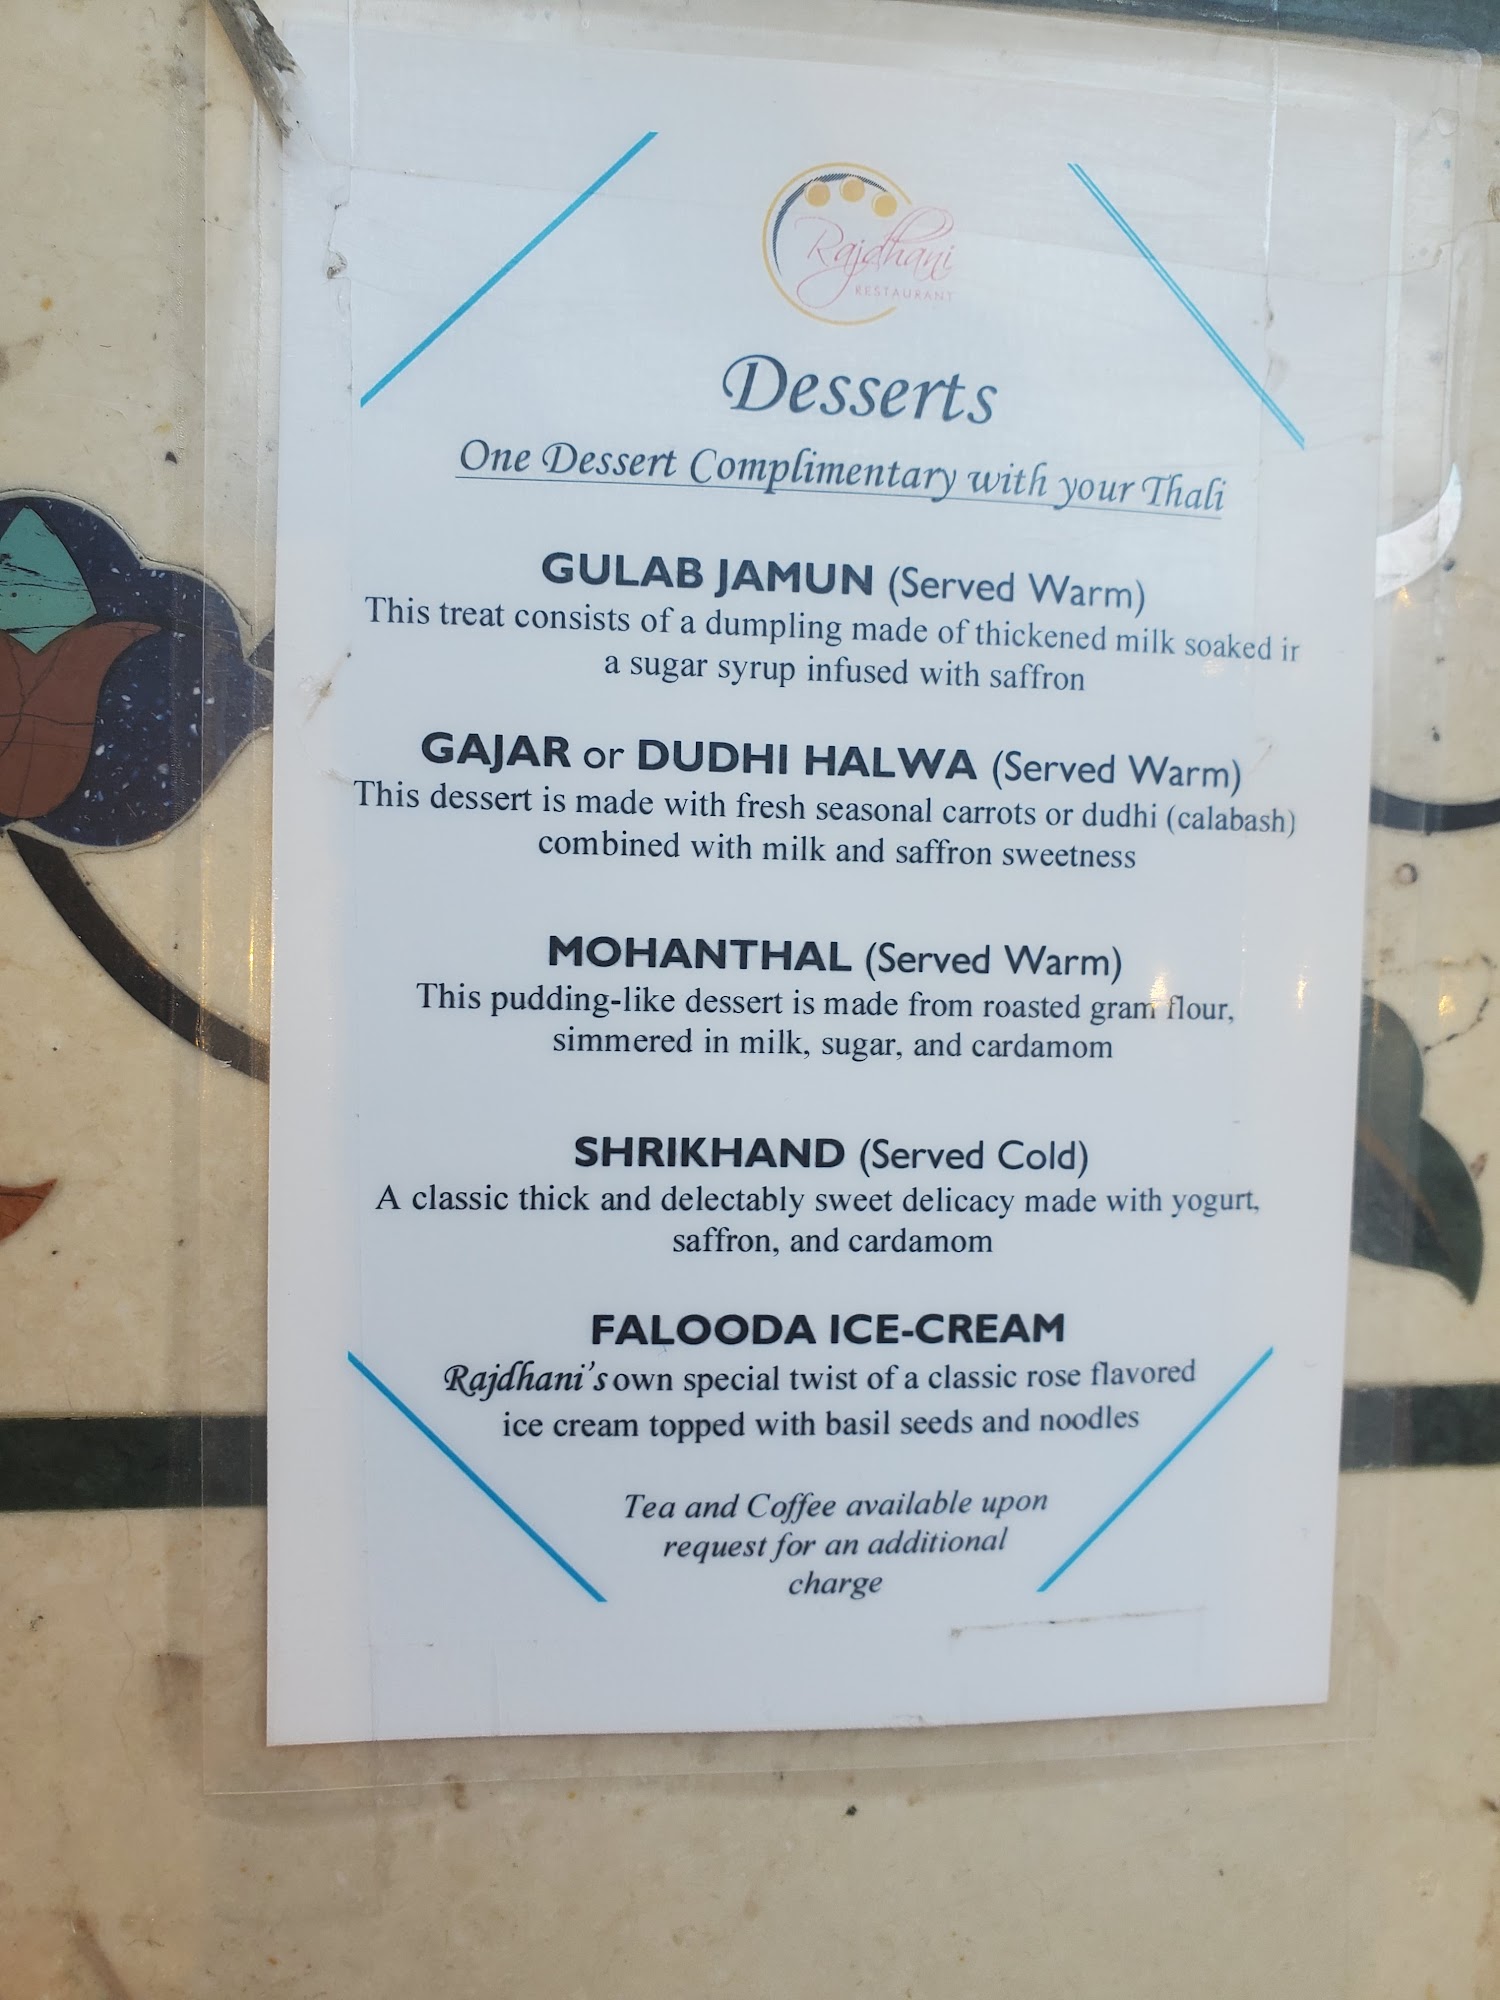 Rajdhani
RESTAURANT
Desserts
One Dessert Complimentary with your Thali
GULAB JAMUN (Served Warm)
This treat consists of a dumpling made of thickened milk soaked in
a sugar syrup infused with saffron
GAJAR or DUDHI HALWA (Served Warm)
This dessert is made with fresh seasonal carrots or dudhi (calabash)
combined with milk and saffron sweetness
MOHANTHAL (Served Warm)
This pudding-like dessert is made from roasted gram flour,
simmered in milk, sugar, and cardamom
SHRIKHAND (Served Cold)
A classic thick and delectably sweet delicacy made with yogurt,
saffron, and cardamom
FALOODA ICE-CREAM
Rajdhani's own special twist of a classic rose flavored
ice cream topped with basil seeds and noodles
Tea and Coffee available upon
request for an additional
charge